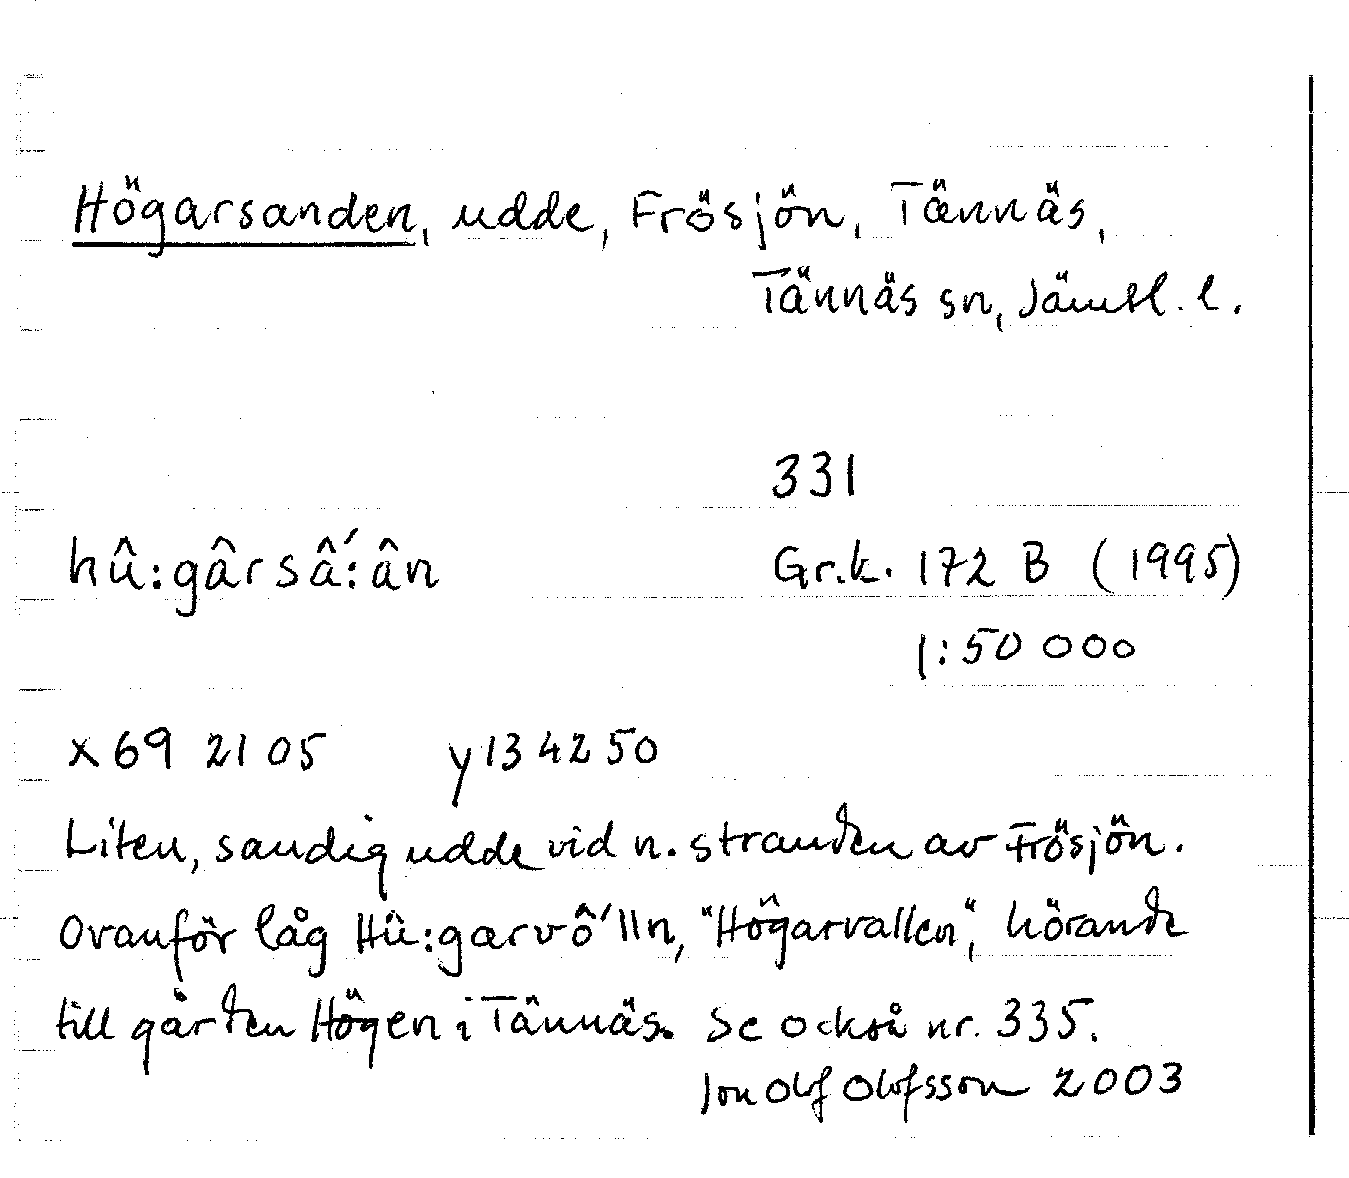 Högarsanden, udde, Frösjön, Tännäs,
Tännäs sn, Jämtl. l.
331
hû:gârsâ´:ân Gr.k. 172 B (1995)
1:50 000
x 69 21 05 y 13 42 50
Liten, sandig udde vid n. stranden av Frösjön.
Ovanför låg Hû:garvô´lln, "Högarvallen", hörande
till gården Högen i Tännäs. Se också nr. 335.
Jon Olof Olofsson 2003